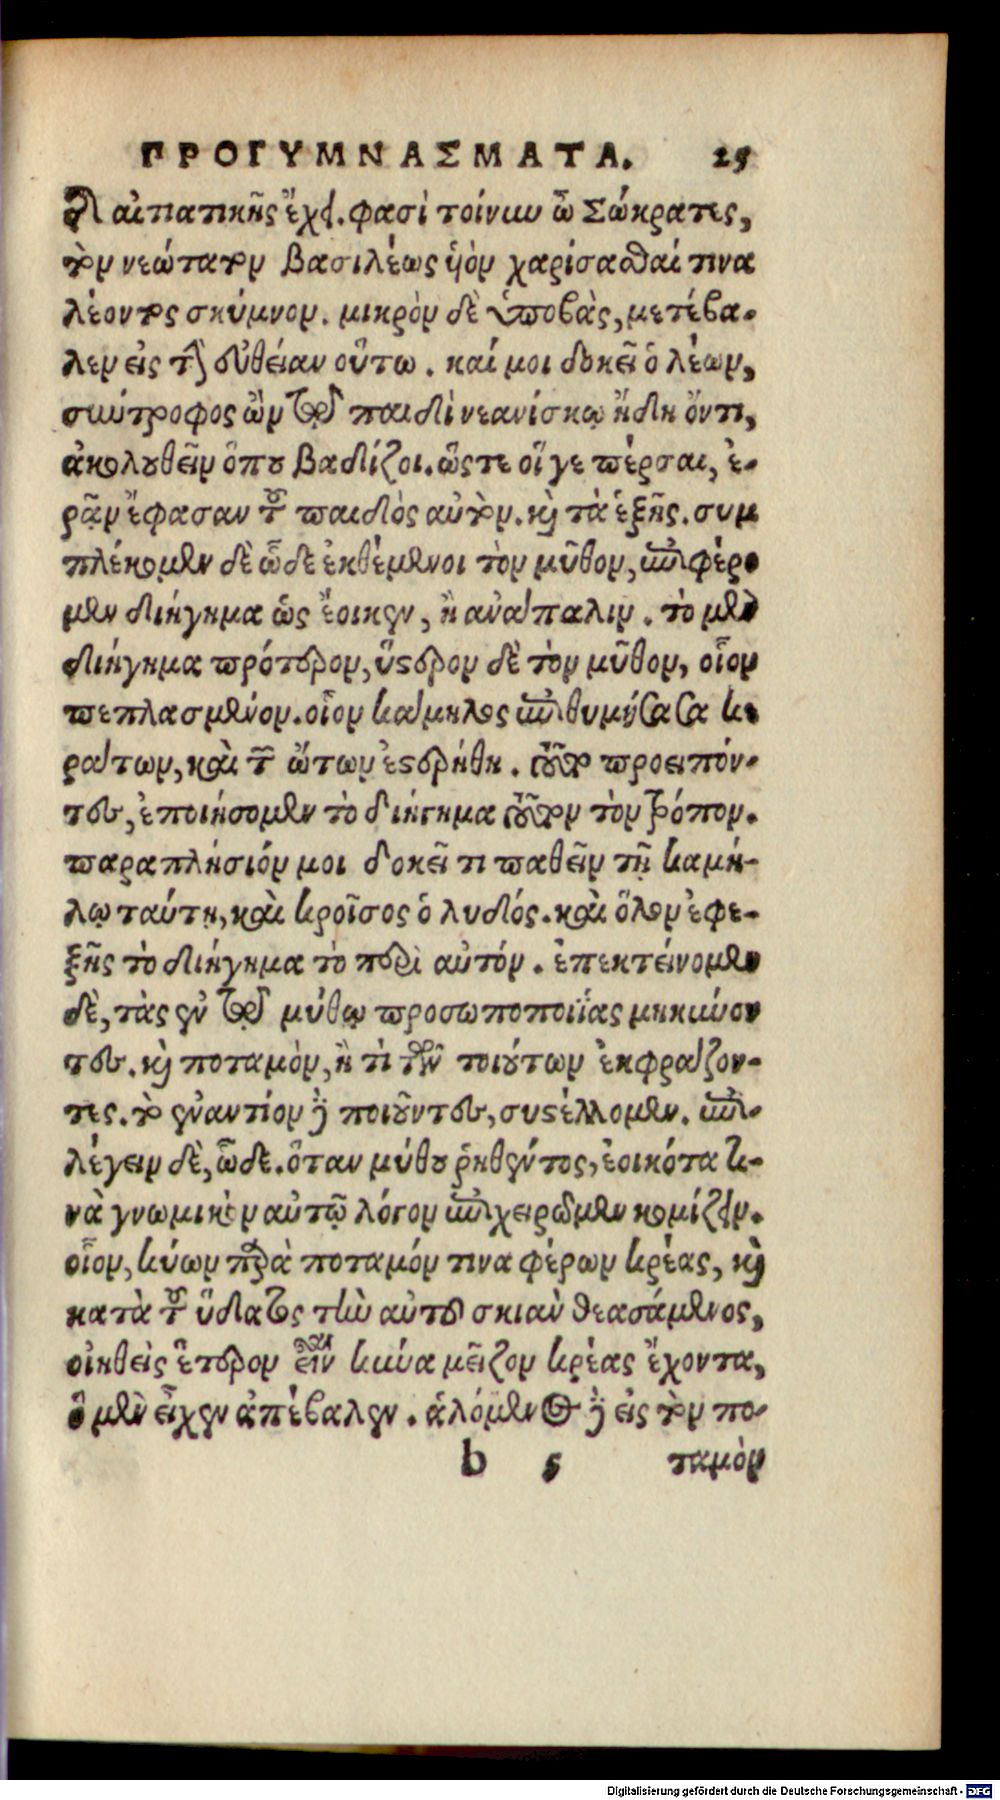 ΠΡΟΓΥΜΝΑΣΜΑΤΑ. 25
αἰτιατικῆς ἔχει. φασὶ τοίνυν ὦ Σώκρατες,
τὸν νεώτατον βασιλέως υἱὸν χαρίσασθαί τινα
λέοντος σκύμνον. μικρὸν δὲ ὑποβὰς, μετέβα-
λεν εἰς τὴν εὐθεῖαν οὕτω. καί μοι δοκεῖ ὁ λέων,
σύντροφος ὢν τῷ παιδὶ νεανίσκῳ ἤδη ὄντι,
ἀκολουθεῖν ὅπου βαδίζοι. ὥστε οἵ γε πέρσαι, ἐ-
ρᾶν ἔφασαν τοῦ παιδὸς αὐτὸν. καὶ τὰ ἑξῆς. συμ
πλέκομεν δὲ ὧδε ἐκθέμενοι τὸν μῦθον, ἐπιφέρο
μεν διήγημα ὡς ἔοικεν, ἢ ἀνάπαλιν. τὸ μὲν
διήγημα πρότερον, ὕστερον δὲ τὸν μῦθον, οἷον
πεπλασμένον. οἷον κάμηλος ἐπιθυμήσασα κε
ράτων, καὶ τῶν ὤτων ἐστερήθη. τοῦτο προειπόν-
τες, ἐποιήσομεν τὸ διήγημα τοῦτον τὸν τρόπον.
παραπλήσιόν μοι δοκεῖ τι παθεῖν τῇ καμή-
λῳ ταύτῃ, καὶ κροῖσος ὁ λυδός. καὶ ὅλον ἐφε-
ξῆς τὸ διήγημα τὸ περὶ αὐτόν. ἐπεκτείνομεν
δὲ, τὰς ἐν τῷ μύθῳ προσωποποιΐας μηκύνον
τες. καὶ ποταμὸν, ἤ τι τῶν τοιούτων ἐκφράζον-
τες. τὸ ἐναντίον δὲ ποιοῦντες, συστέλλομεν. ἐπι-
λέγειν δὲ, ὧδε. ὅταν μύθου ῥηθέντος, ἐοικότα τι-
νὰ γνωμικὸν αὐτῷ λόγον ἐπιχειρῶμεν κομίζειν.
οἷον, κύων παρὰ ποταμόν τινα φέρων κρέας, καὶ
κατὰ τοῦ ὕδατος τὴν αὐτοῦ σκιὰν θεασάμενος,
οἰηθεὶς ἕτερον εἶναι κύνα μεῖζον κρέας ἔχοντα,
ὃ μὲν εἶχεν ἀπέβαλεν. ἁλόμενος δὲ εἰς τὸν πο-
b 5 ταμὸν
Digitalisierung gefördert durch die Deutsche Forschungsgemeinschaft - DFG